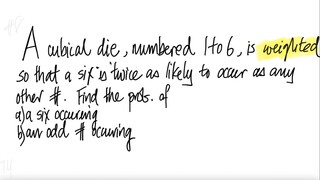 A cubical die, numbered 1 to 6, is weighted
so that a six is twice as likely to occur as any
other #. Find the probs. of
a) a six occuring
b) an odd # ocurring